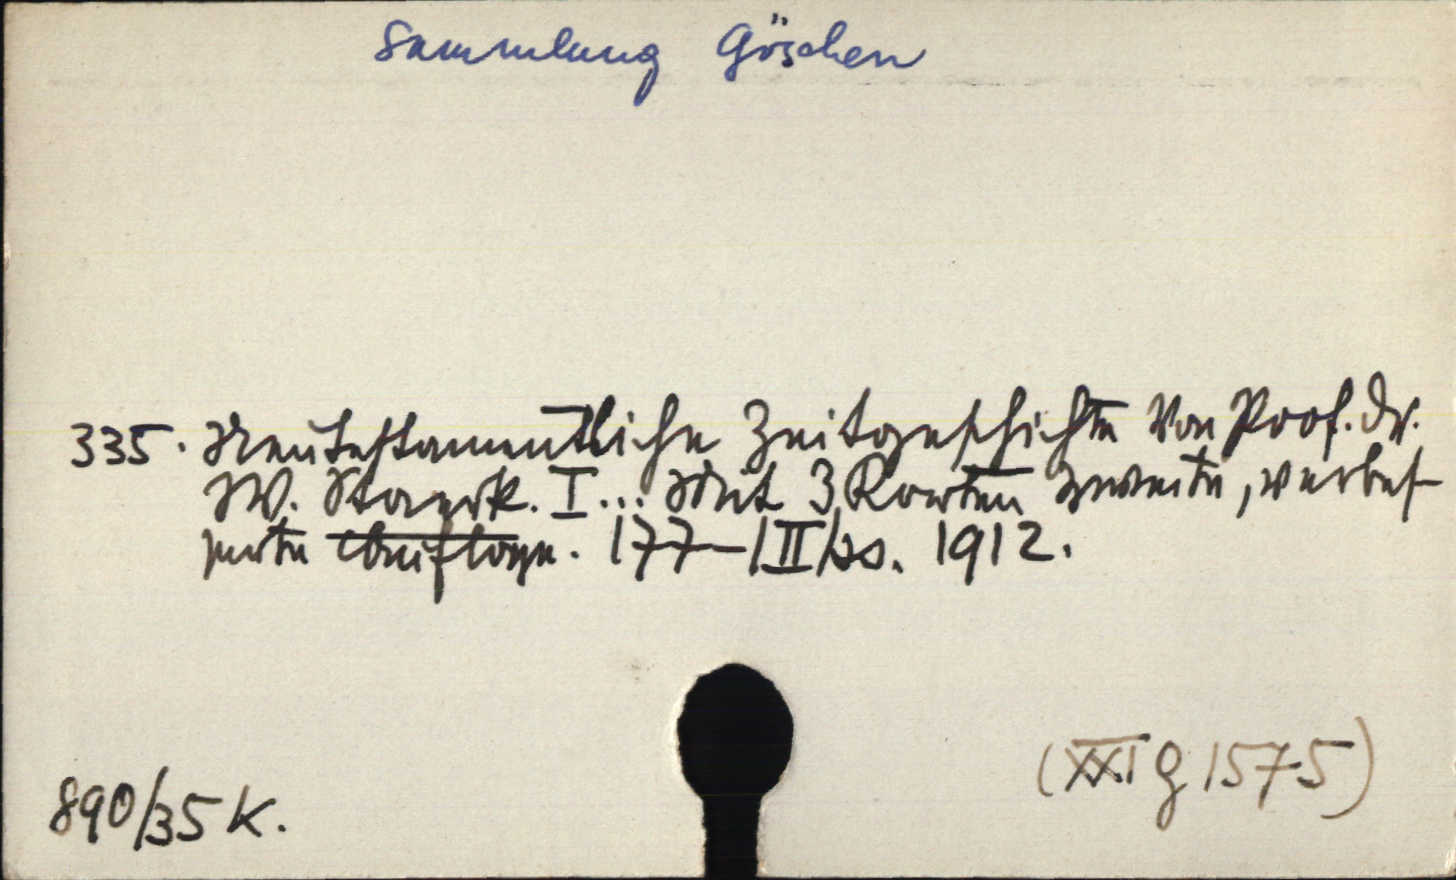 Sammlung Göschen
335. Neutestamentliche Zeitgeschichte von Prof. Dr.
W. Staerk. I... Mit 3 Karten Zweite, verbes-
serte Auflage. 177 1912.
890/35 K.
(XXI g 1575)